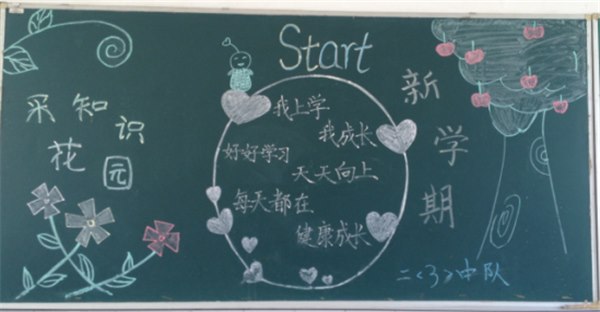 Start
采知识
花园
我上学
我成长
好好学习
天天向上
每天都在
健康成长
新学期
二<3>中队